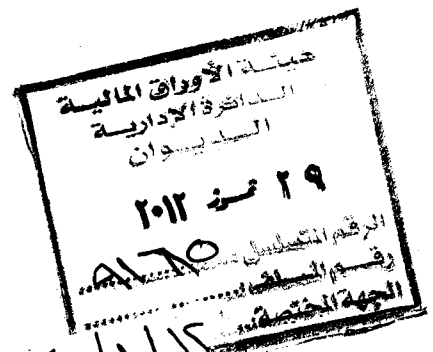 هيئة الأوراق المالية
الدائرة الإدارية
الديوان
٢٩ تموز ٢٠١٢
الرقم المتسلسل
رقم الملف
الجهة المختصة